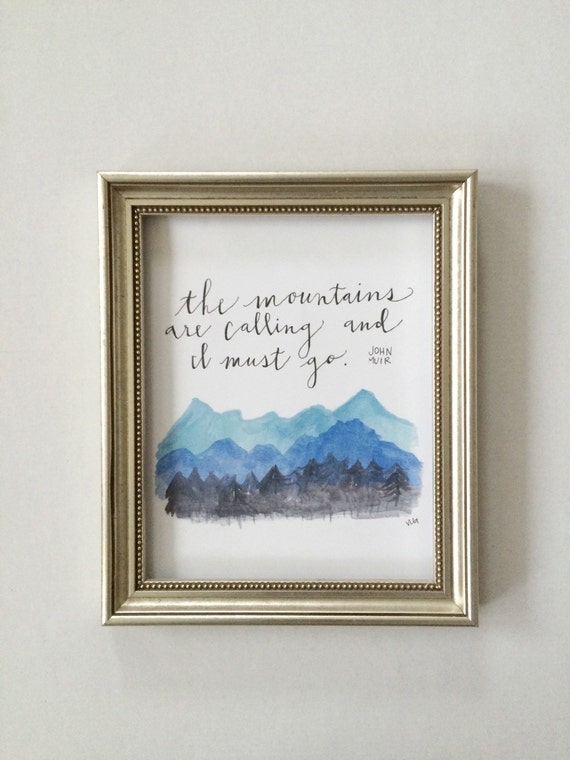 the mountains
are calling and
I must go.
JOHN
MUIR